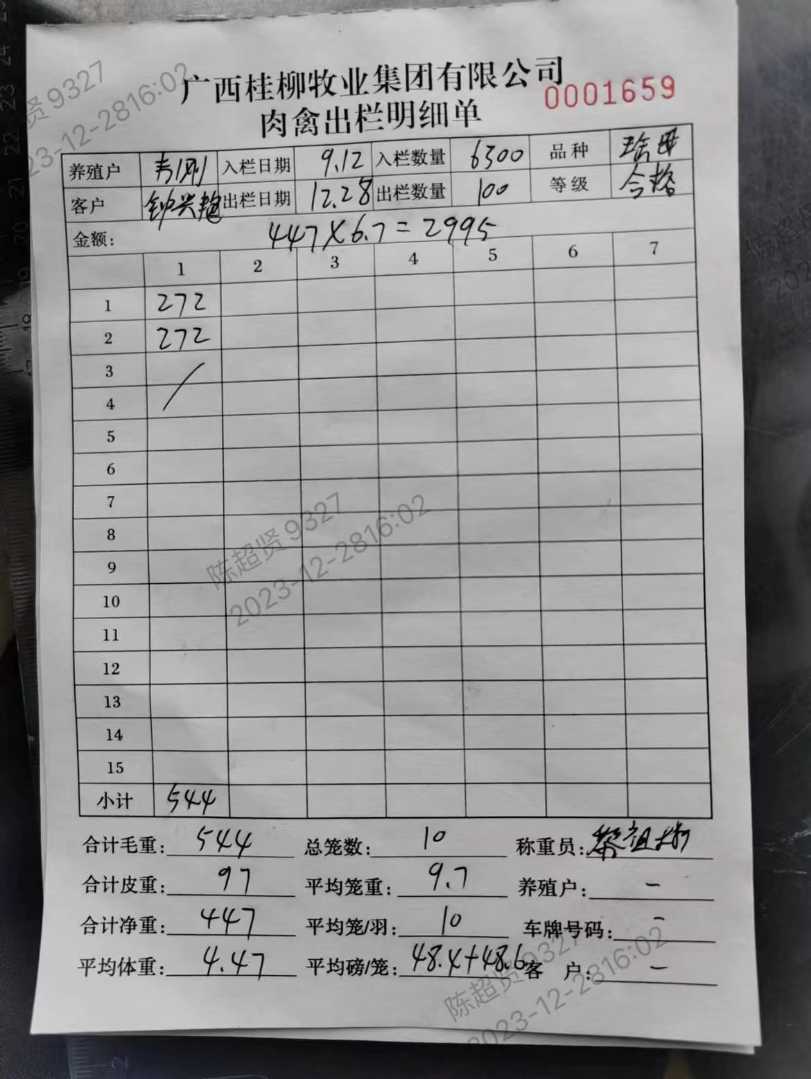 广西桂柳牧业集团有限公司
0001659
肉禽出栏明细单
养殖户 入栏日期 9.12 入栏数量 6300 品种
客户 钟兴艳 出栏日期 12.28 出栏数量 100 等级 合格
金额: 447×6.7=2995
1 2 3 4 5 6 7
1 272
2 272
3 /
4
5
6
7
8
9
10
11
12
13
14
15
小计 544
合计毛重: 544 总笼数: 10 称重员:
合计皮重: 97 平均笼重: 9.7 养殖户: -
合计净重: 447 平均笼/羽: 10 车牌号码: -
平均体重: 4.47 平均磅/笼: 48.4+48.6 客户: -
贤 9327
23-12-2816:02
陈超贤 9327
2023-12-2816:02
陈超贤 9327
2023-12-2816:02